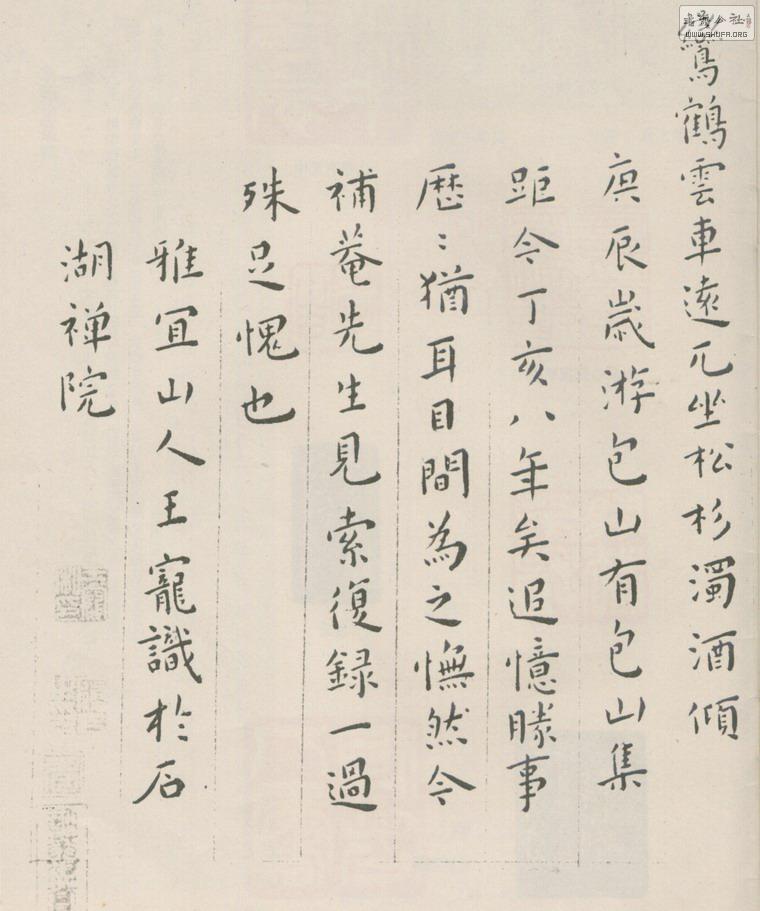 鸞鶴雲車遠兀坐松杉濁酒傾
庚辰歲游包山有包山集
距今丁亥八年矣追憶勝事
歷〻猶耳目間為之憮然今
補菴先生見索復録一過
殊足愧也
雅宜山人王寵識於石
湖禅院
WWW.SHUFA.ORG